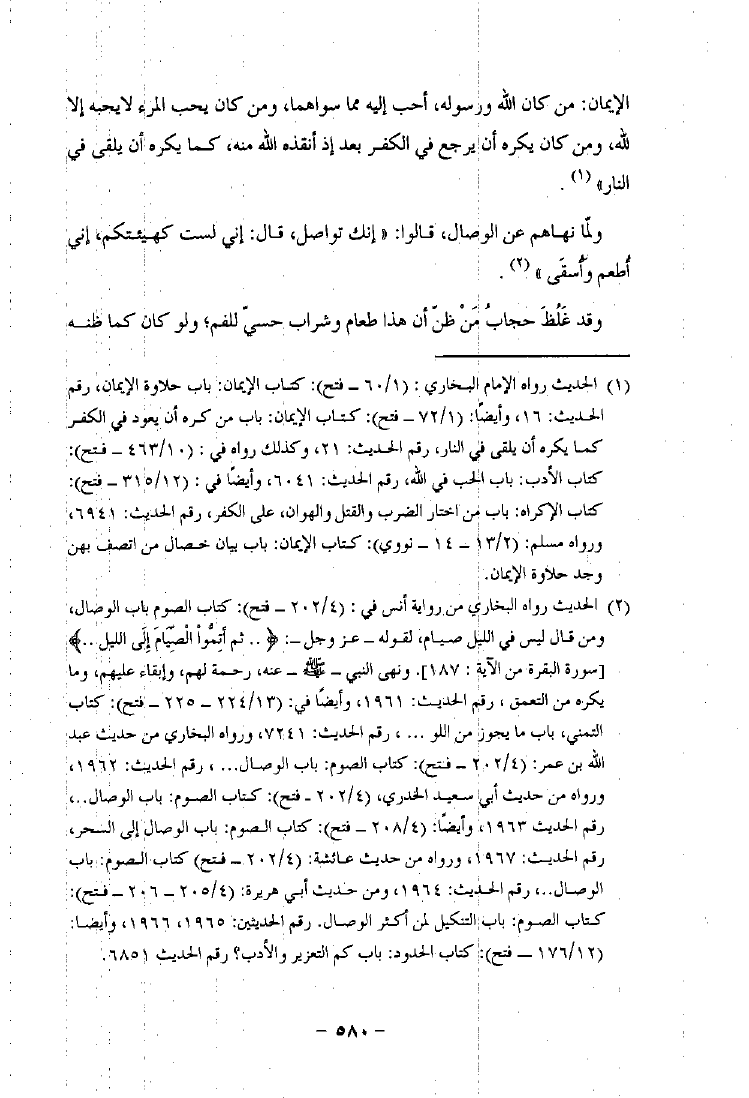 الإيمان: من كان الله ورسوله، أحب إليه مما سواهما، ومن كان يحب المرء لايحبه إلا
لله، ومن كان يكره أن يرجع في الكفر بعد إذ أنقذه الله منه، كما يكره أن يلقى في
النار» (١) .
ولمّا نهاهم عن الوصال، قالوا: « إنك تواصل، قال: إني لست كهيئتكم، إني
أُطعم وأُسقَى » (٢) .
وقد غَلُظَ حجابُ مَنْ ظنّ أن هذا طعام وشراب حسيّ للفم؛ ولو كان كما ظنه
(١) الحديث رواه الإمام البخاري : (٦٠/١ ــ فتح): كتاب الإيمان: باب حلاوة الإيمان، رقم
الحديث: ١٦، وأيضًا: (٧٢/١ ــ فتح): كتاب الإيمان: باب من كره أن يعود في الكفر
كما يكره أن يلقى في النار، رقم الحديث: ٢١، وكذلك رواه في : (٤٦٣/١٠ ــ فتح):
كتاب الأدب: باب الحب في الله، رقم الحديث: ٦٠٤١، وأيضًا في : (٣١٥/١٢ ــ فتح):
كتاب الإكراه: باب من اختار الضرب والقتل والهوان، على الكفر، رقم الحديث: ٦٩٤١،
ورواه مسلم: (١٣/٢ ــ ١٤ ــ نووي): كتاب الإيمان: باب بيان خصال من اتصف بهن
وجد حلاوة الإيمان.
(٢) الحديث رواه البخاري من رواية أنس في : (٢٠٢/٤ ــ فتح): كتاب الصوم باب الوصال،
ومن قال ليس في الليل صيام، لقوله ــ عز وجل ــ: ﴿ .. ثم أَتِمُّواْ الْصِّيَامَ إِلَى الليل ..﴾
[سورة البقرة من الآية : ١٨٧]. ونهى النبي ــ ﷺ ــ عنه، رحمة لهم، وإبقاء عليهم، وما
يكره من التعمق ، رقم الحديث: ١٩٦١، وأيضًا في: (٢٢٤/١٣ ــ ٢٢٥ ــ فتح): كتاب
التمني، باب ما يجوز من اللو ... ، رقم الحديث: ٧٢٤١، ورواه البخاري من حديث عبد
الله بن عمر: (٢٠٢/٤ ــ فتح): كتاب الصوم: باب الوصال... ، رقم الحديث: ١٩٦٢،
ورواه من حديث أبي سعيد الخدري، (٢٠٢/٤ ـ فتح): كتاب الصوم: باب الوصال..،
رقم الحديث ١٩٦٣، وأيضًا: (٢٠٨/٤ ــ فتح): كتاب الصوم: باب الوصال إلى السحر،
رقم الحديث: ١٩٦٧، ورواه من حديث عائشة: (٢٠٢/٤ ــ فتح) كتاب الصوم: باب
الوصال..، رقم الحديث: ١٩٦٤، ومن حديث أبي هريرة: (٢٠٥/٤ ــ ٢٠٦ ــ فتح):
كتاب الصوم: باب التنكيل لمن أكثر الوصال. رقم الحديثين: ١٩٦٥، ١٩٦٦، وأيضا:
(١٧٦/١٢ ــ فتح): كتاب الحدود: باب كم التعزير والأدب؟ رقم الحديث ٦٨٥١.
– ٥٨٠ –